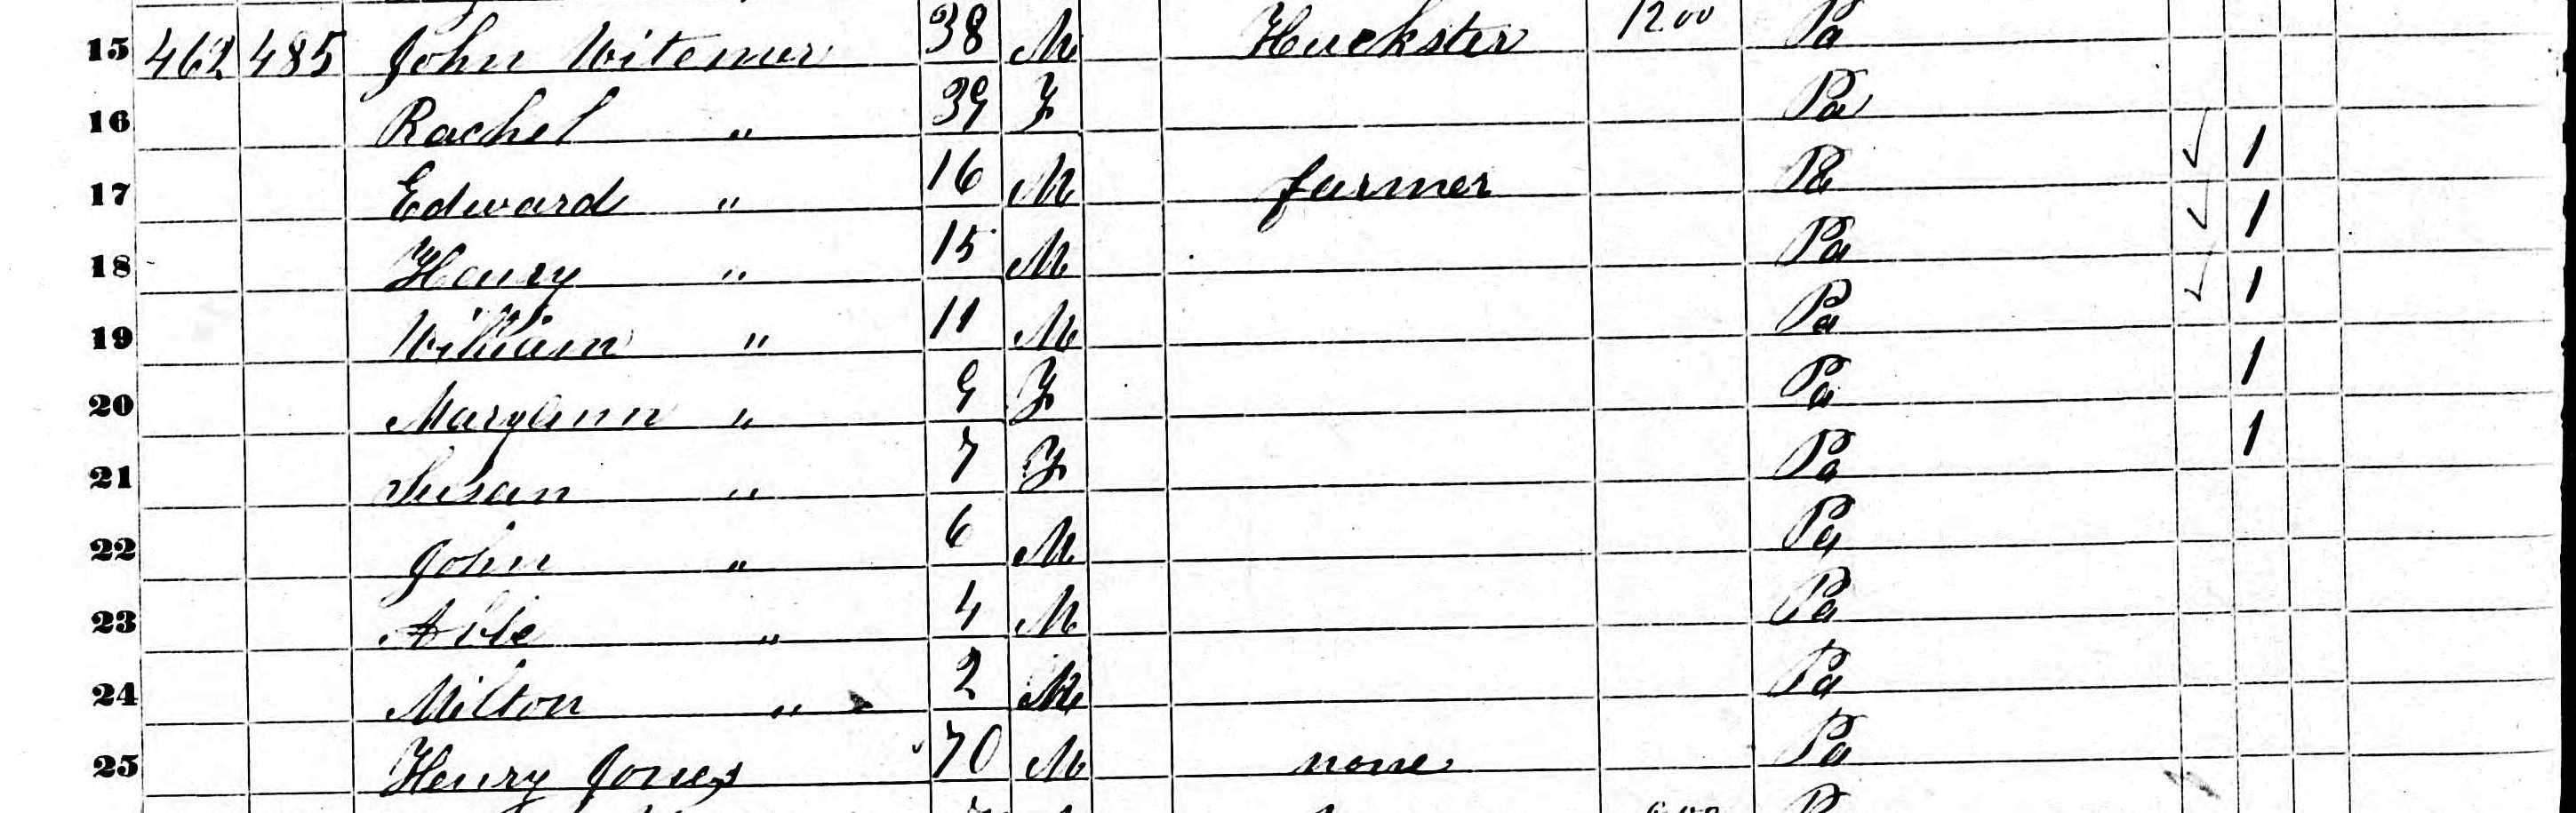 15 462 485 John Witemer 38 M Huckster 1200 Pa
16 Rachel " 39 F Pa
17 Edward " 16 M farmer Pa 1
18 Henry " 15 M Pa 1
19 William " 11 M Pa 1
20 Maryann " 9 F Pa 1
21 Susan " 7 F Pa 1
22 John " 6 M Pa
23 Able " 4 M Pa
24 Milton " 2 M Pa
25 Henry Jones 70 M none Pa